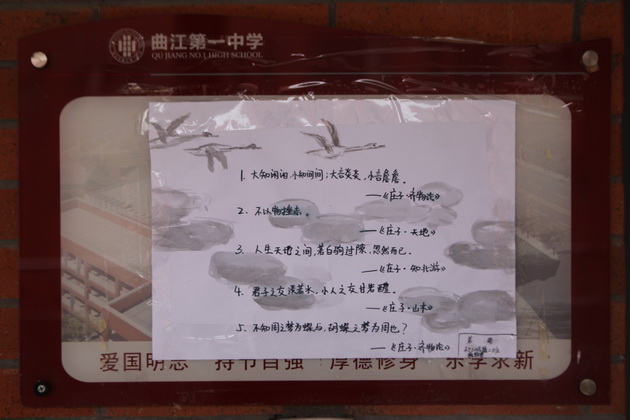 曲江第一中学
QU JIANG NO.1 HIGH SCHOOL
1. 大知闲闲,小知间间;大言炎炎,小言詹詹。
——《庄子·齐物论》
2. 不以物挫志。
——《庄子·天地》
3. 人生天地之间,若白驹过隙,忽然而已。
——《庄子·知北游》
4. 君子之交淡若水,小人之交甘若醴。
——《庄子·山木》
5. 不知周之梦为蝶与,胡蝶之梦为周也?
——《庄子·齐物论》
爱国明志 持节自强 厚德修身 乐学求新